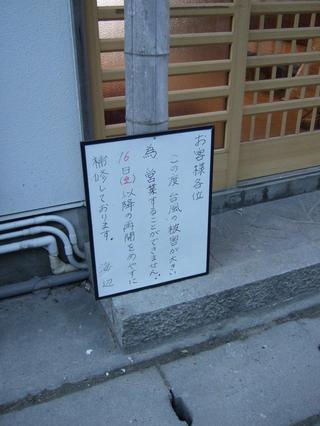 お客様各位
この度台風の被害が大きい
為 営業することができません。
16日(土)以降の再開をめやすに
補修しております。 海辺